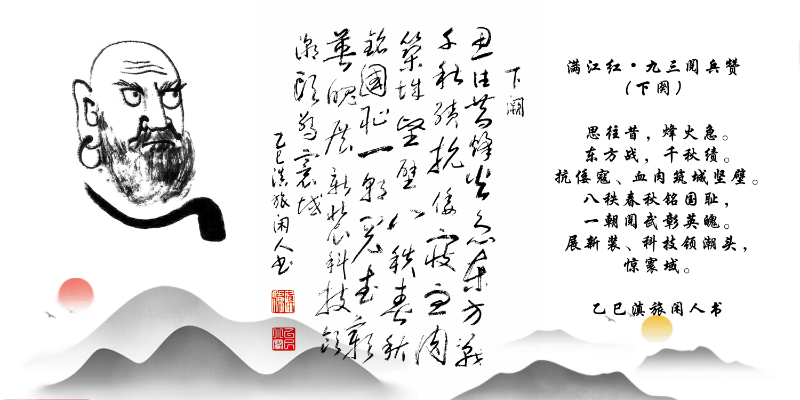 满江红·九三阅兵赞
（下阕）
思往昔，烽火急。
东方战，千秋绩。
抗倭寇、血肉筑城坚壁。
八秩春秋铭国耻，
一朝阅武彰英魄。
展新装、科技领潮头，
惊寰域。
乙巳滇旅闲人书
下阕
思往昔烽火急东方战
千秋绩抗倭寇血肉
筑城坚壁八秩春秋
铭国耻一朝阅武彰
英魄展新装科技领
潮头惊寰域
乙巳滇旅闲人书